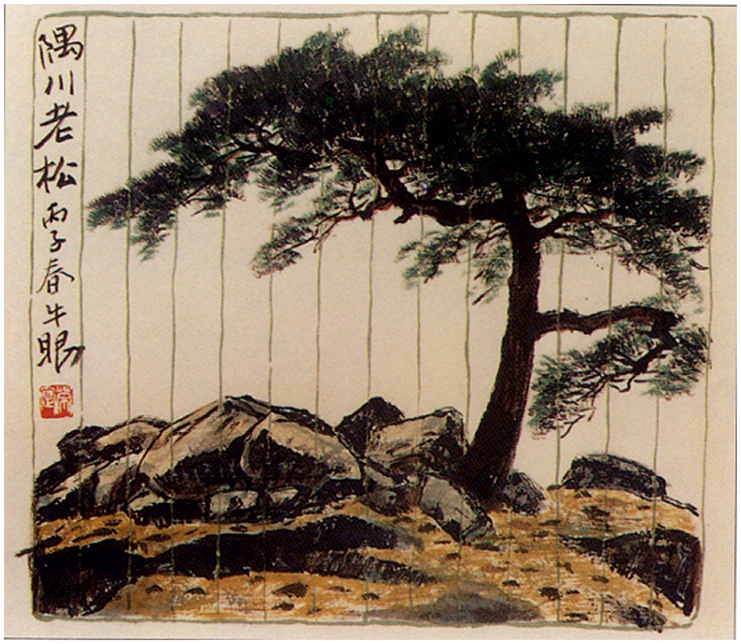 隅川老松 丙子春 牛眠